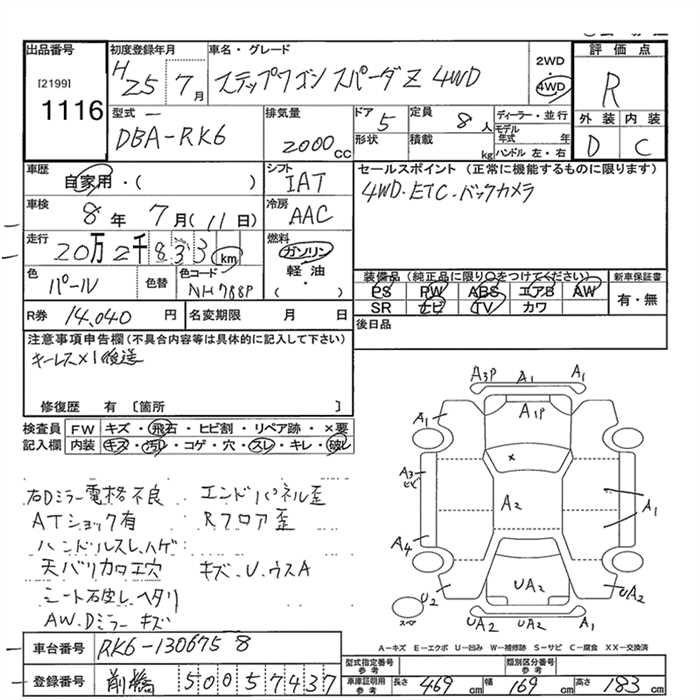 出品番号
[2199]
1116
初度登録年月
H25 7月
車名・グレード
ステップワゴン スパーダZ 4WD
2WD
4WD
評価点
R
外装 内装
D C
型式
DBA-RK6
排気量
2000cc
ドア
5
形状
定員
8人
積載
kg
ディーラー・並行
モデル年式 年
ハンドル 左・右
車歴
自家用・( )
シフト
IAT
車検
8年 7月(11日)
冷房
AAC
走行
20万2千833km
燃料
ガソリン
軽油
( )
色
パール
色替
色コード
NH788P
R券 14,040円
名変期限 月 日
セールスポイント(正常に機能するものに限ります)
4WD・ETC・バックカメラ
装備品(純正品に限り○をつけてください)
PS PW ABS エアB AW
SR ナビ TV カワ
新車保証書
有・無
後日品
注意事項申告欄(不具合内容等は具体的に記入して下さい)
キーレス×1後送
修復歴 有 [箇所 ]
検査員記入欄
FW キズ・飛石・ヒビ割・リペア跡・×要
内装 キズ・汚れ・コゲ・穴・スレ・キレ・破レ
右Dミラー電格不良
ATショック有
ハンドルスレ、ハゲ
天バリカワエ穴
シート石皮し、ヘタリ
AW、Dミラーキズ
エンドパネル歪
Rフロア歪
キズ、U、ウスA
A3P A1 A1
A1 A1P
A3
ヒビ
×
A2
A1
A4
U2 UA2 UA2 UA2
UA2 UA2
スペア
A-キズ E-エクボ U-凹み W-補修跡 S-サビ C-腐食 XX-交換済
車台番号 RK6-1306758
登録番号 前橋 500 5 7437
型式指定番号
参考
類別区分番号
参考
車庫証明用
参考
長さ 469cm 幅 169cm 高さ 183cm